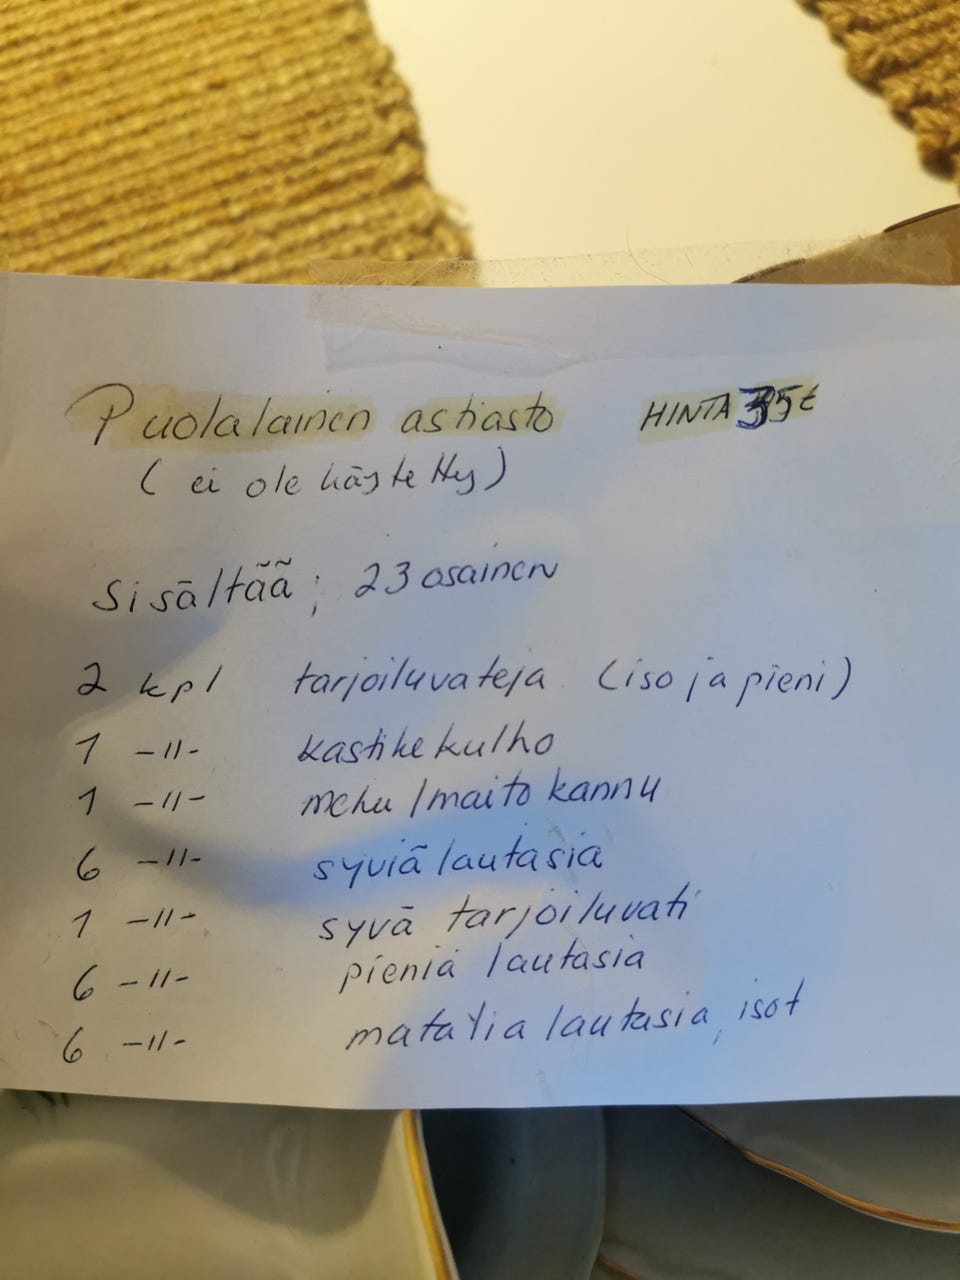 Puolalainen astiasto HINTA 35€
(ei ole käytetty)
Sisältää; 23 osainen
2 kpl tarjoiluvateja (iso ja pieni)
1 -11- kastikekulho
1 -11- mehu/maito kannu
6 -11- syviä lautasia
1 -11- syvä tarjoiluvati
6 -11- pieniä lautasia
6 -11- matalia lautasia, isot